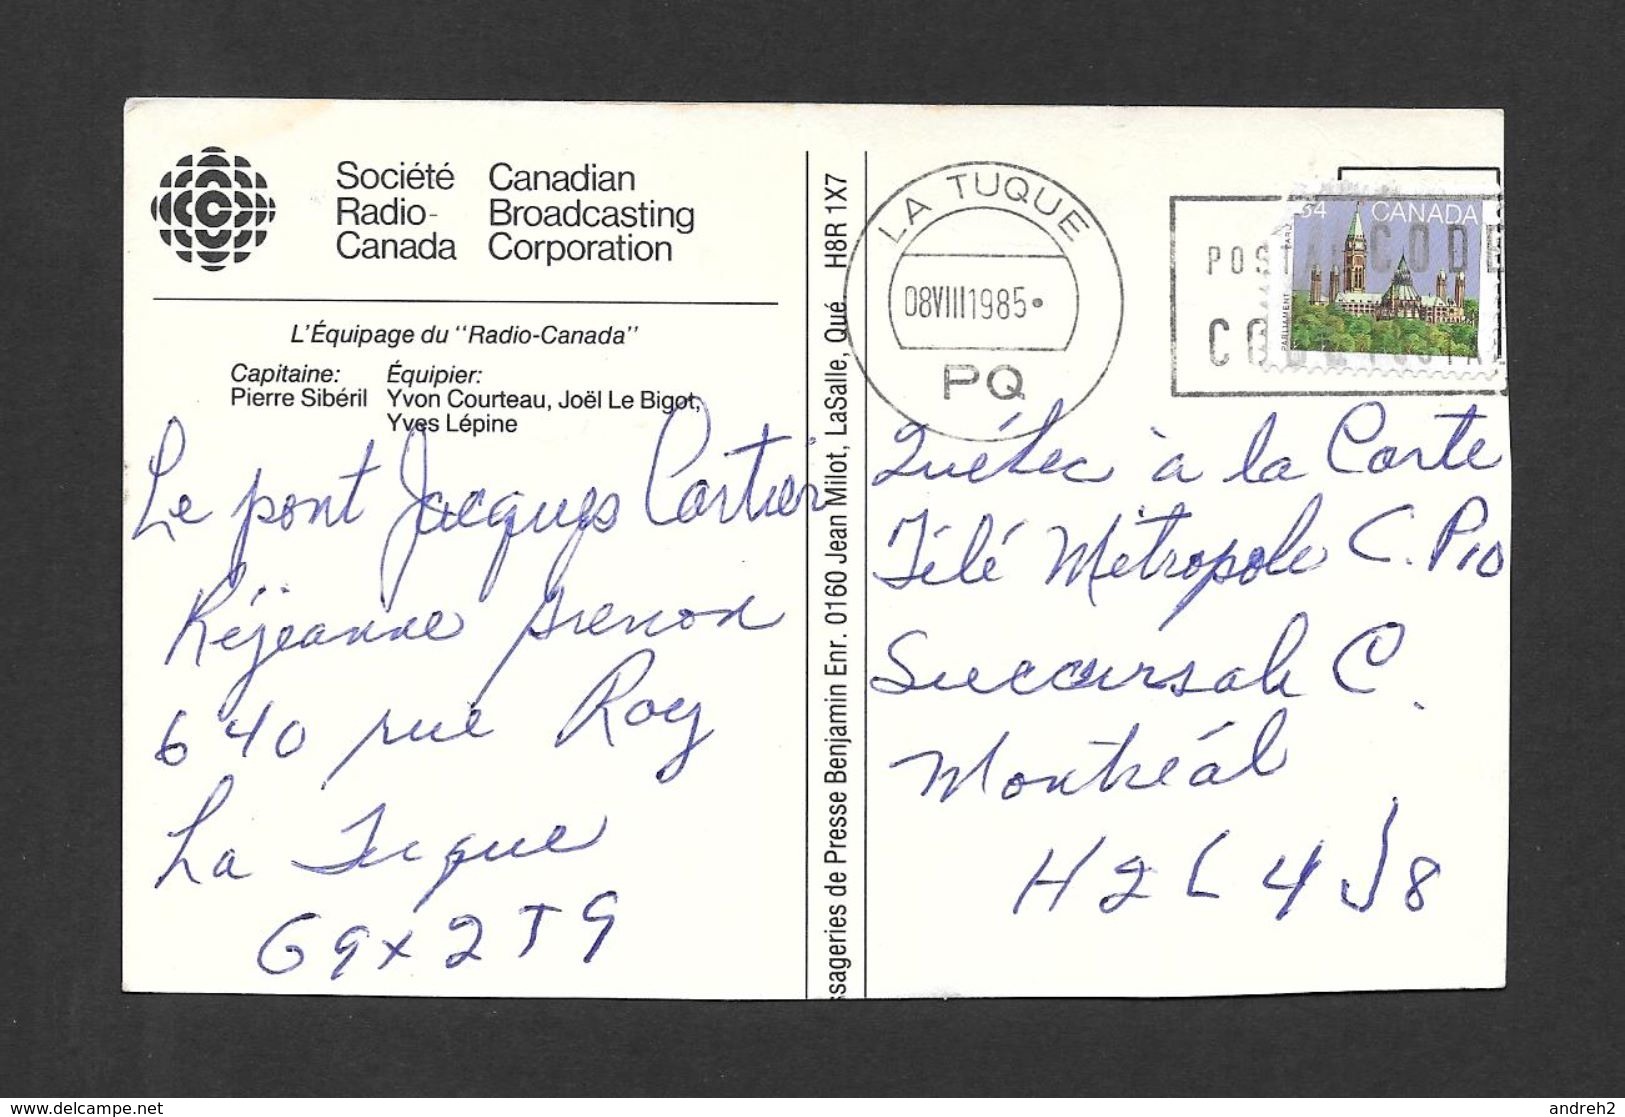 Société Canadian
Radio- Broadcasting
Canada Corporation
L'Équipage du "Radio-Canada"
Capitaine: Équipier:
Pierre Sibéril Yvon Courteau, Joël Le Bigot,
Yves Lépine
Le pont Jacques Cartier
Réjeanne Grenon
640 rue Roy
La Tuque
G9X 2T9
ssageries de Presse Benjamin Enr. 0160 Jean Milot, LaSalle, Qué. H8R 1X7
LA TUQUE
08VIII1985
PQ
POSTAL CODE
CODE POSTAL
34 CANADA
PARLIAMENT
Québec à la Carte
Télé Métropole C.P 10
Succursale C.
Montréal
H2L 4J8
delcampe.net
andreh2